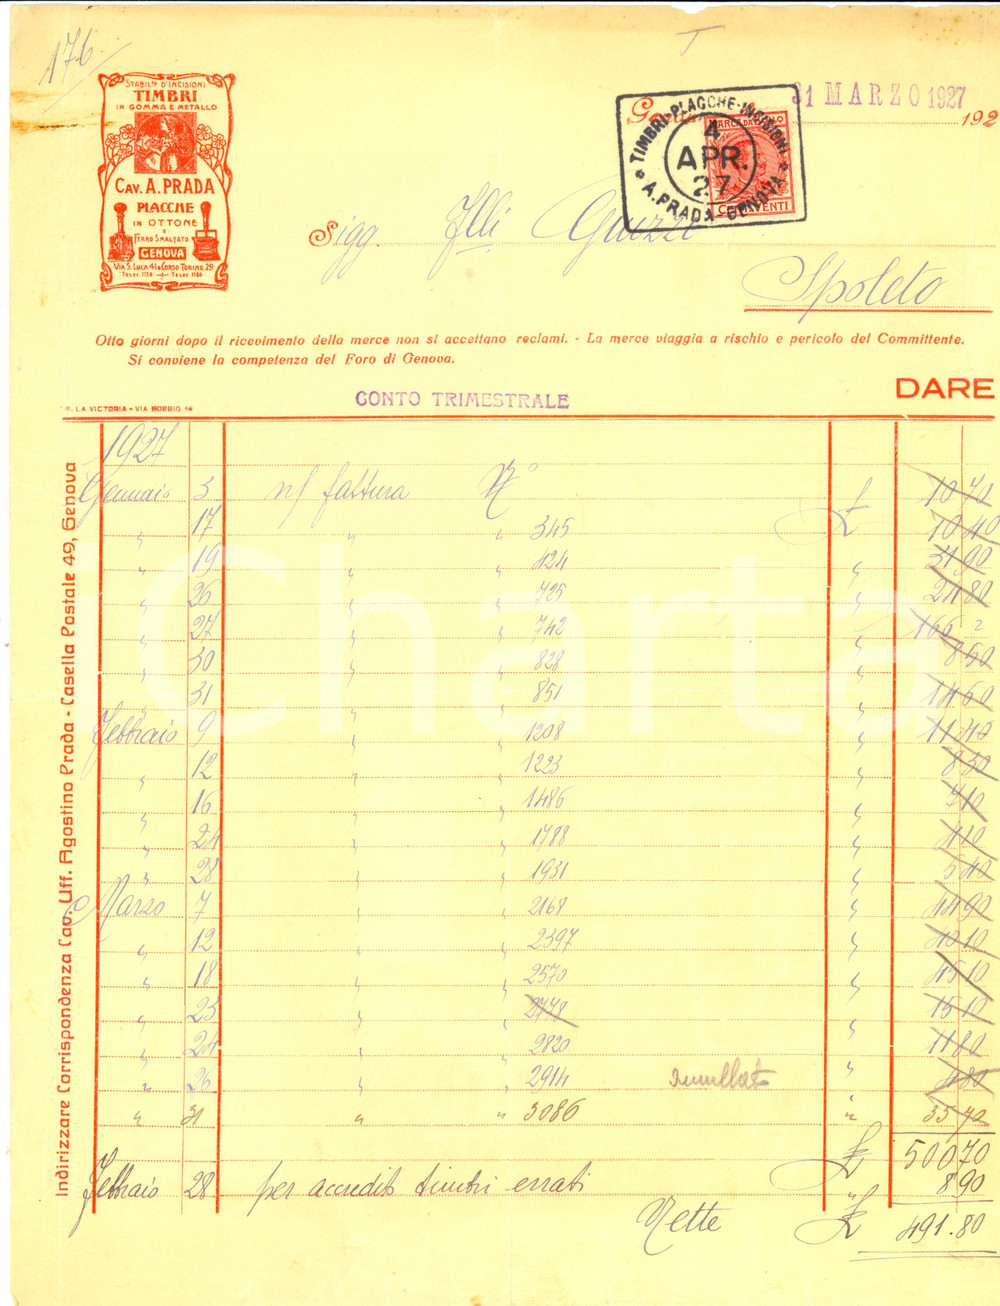 176
STABIL.TO D'INCISIONI
TIMBRI
IN GOMMA E METALLO
CAV. A. PRADA
PLACCHE
IN OTTONE
E
FERRO SMALTATO
GENOVA
VIA S. LUCA, 4 CORSO TORINO, 29
31 MARZO 1927
192
TIMBRI-PLACCHE-INCISIONI
4
APR.
27
A. PRADA - GENOVA
MARCA DA BOLLO
CENT. VENTI
Sigg. Flli Guizzi
Spoleto
Otto giorni dopo il ricevimento della merce non si accettano reclami. - La merce viaggia a rischio e pericolo del Committente.
Si conviene la competenza del Foro di Genova.
DARE
CONTO TRIMESTRALE
LA VICTORIA - VIA BOBBIO 14
Indirizzare Corrispondenza Cav. Uff. Agostino Prada - Casella Postale 49, Genova
1927
Gennaio 3 n/ fattura N° £ 10 70
" 17 " " 345 £ 10 40
" 19 " " 424 " 31 90
" 26 " " 725 " 21 80
" 27 " " 742 " 166
" 30 " " 828 " 8 50
" 31 " " 851 " 14 60
Febbraio 9 " " 1208 " 11 40
" 12 " " 1223 " 8 30
" 16 " " 1486 " 7 10
" 24 " " 1788 " 4 10
" 28 " " 1931 " 5 40
Marzo 7 " " 2168 " 44 90
" 12 " " 2397 " 40 10
" 18 " " 2570 " 45 10
" 23 " " 2778 " 15 10
" 24 " " 2820 " 11 80
" 26 " " 2914 annullato " 4 80
" 31 " " 3086 " 35 70
£ 500 70
Febbraio 28 per accredito timbri errati " 8 90
Nette £ 491.80
iCharta